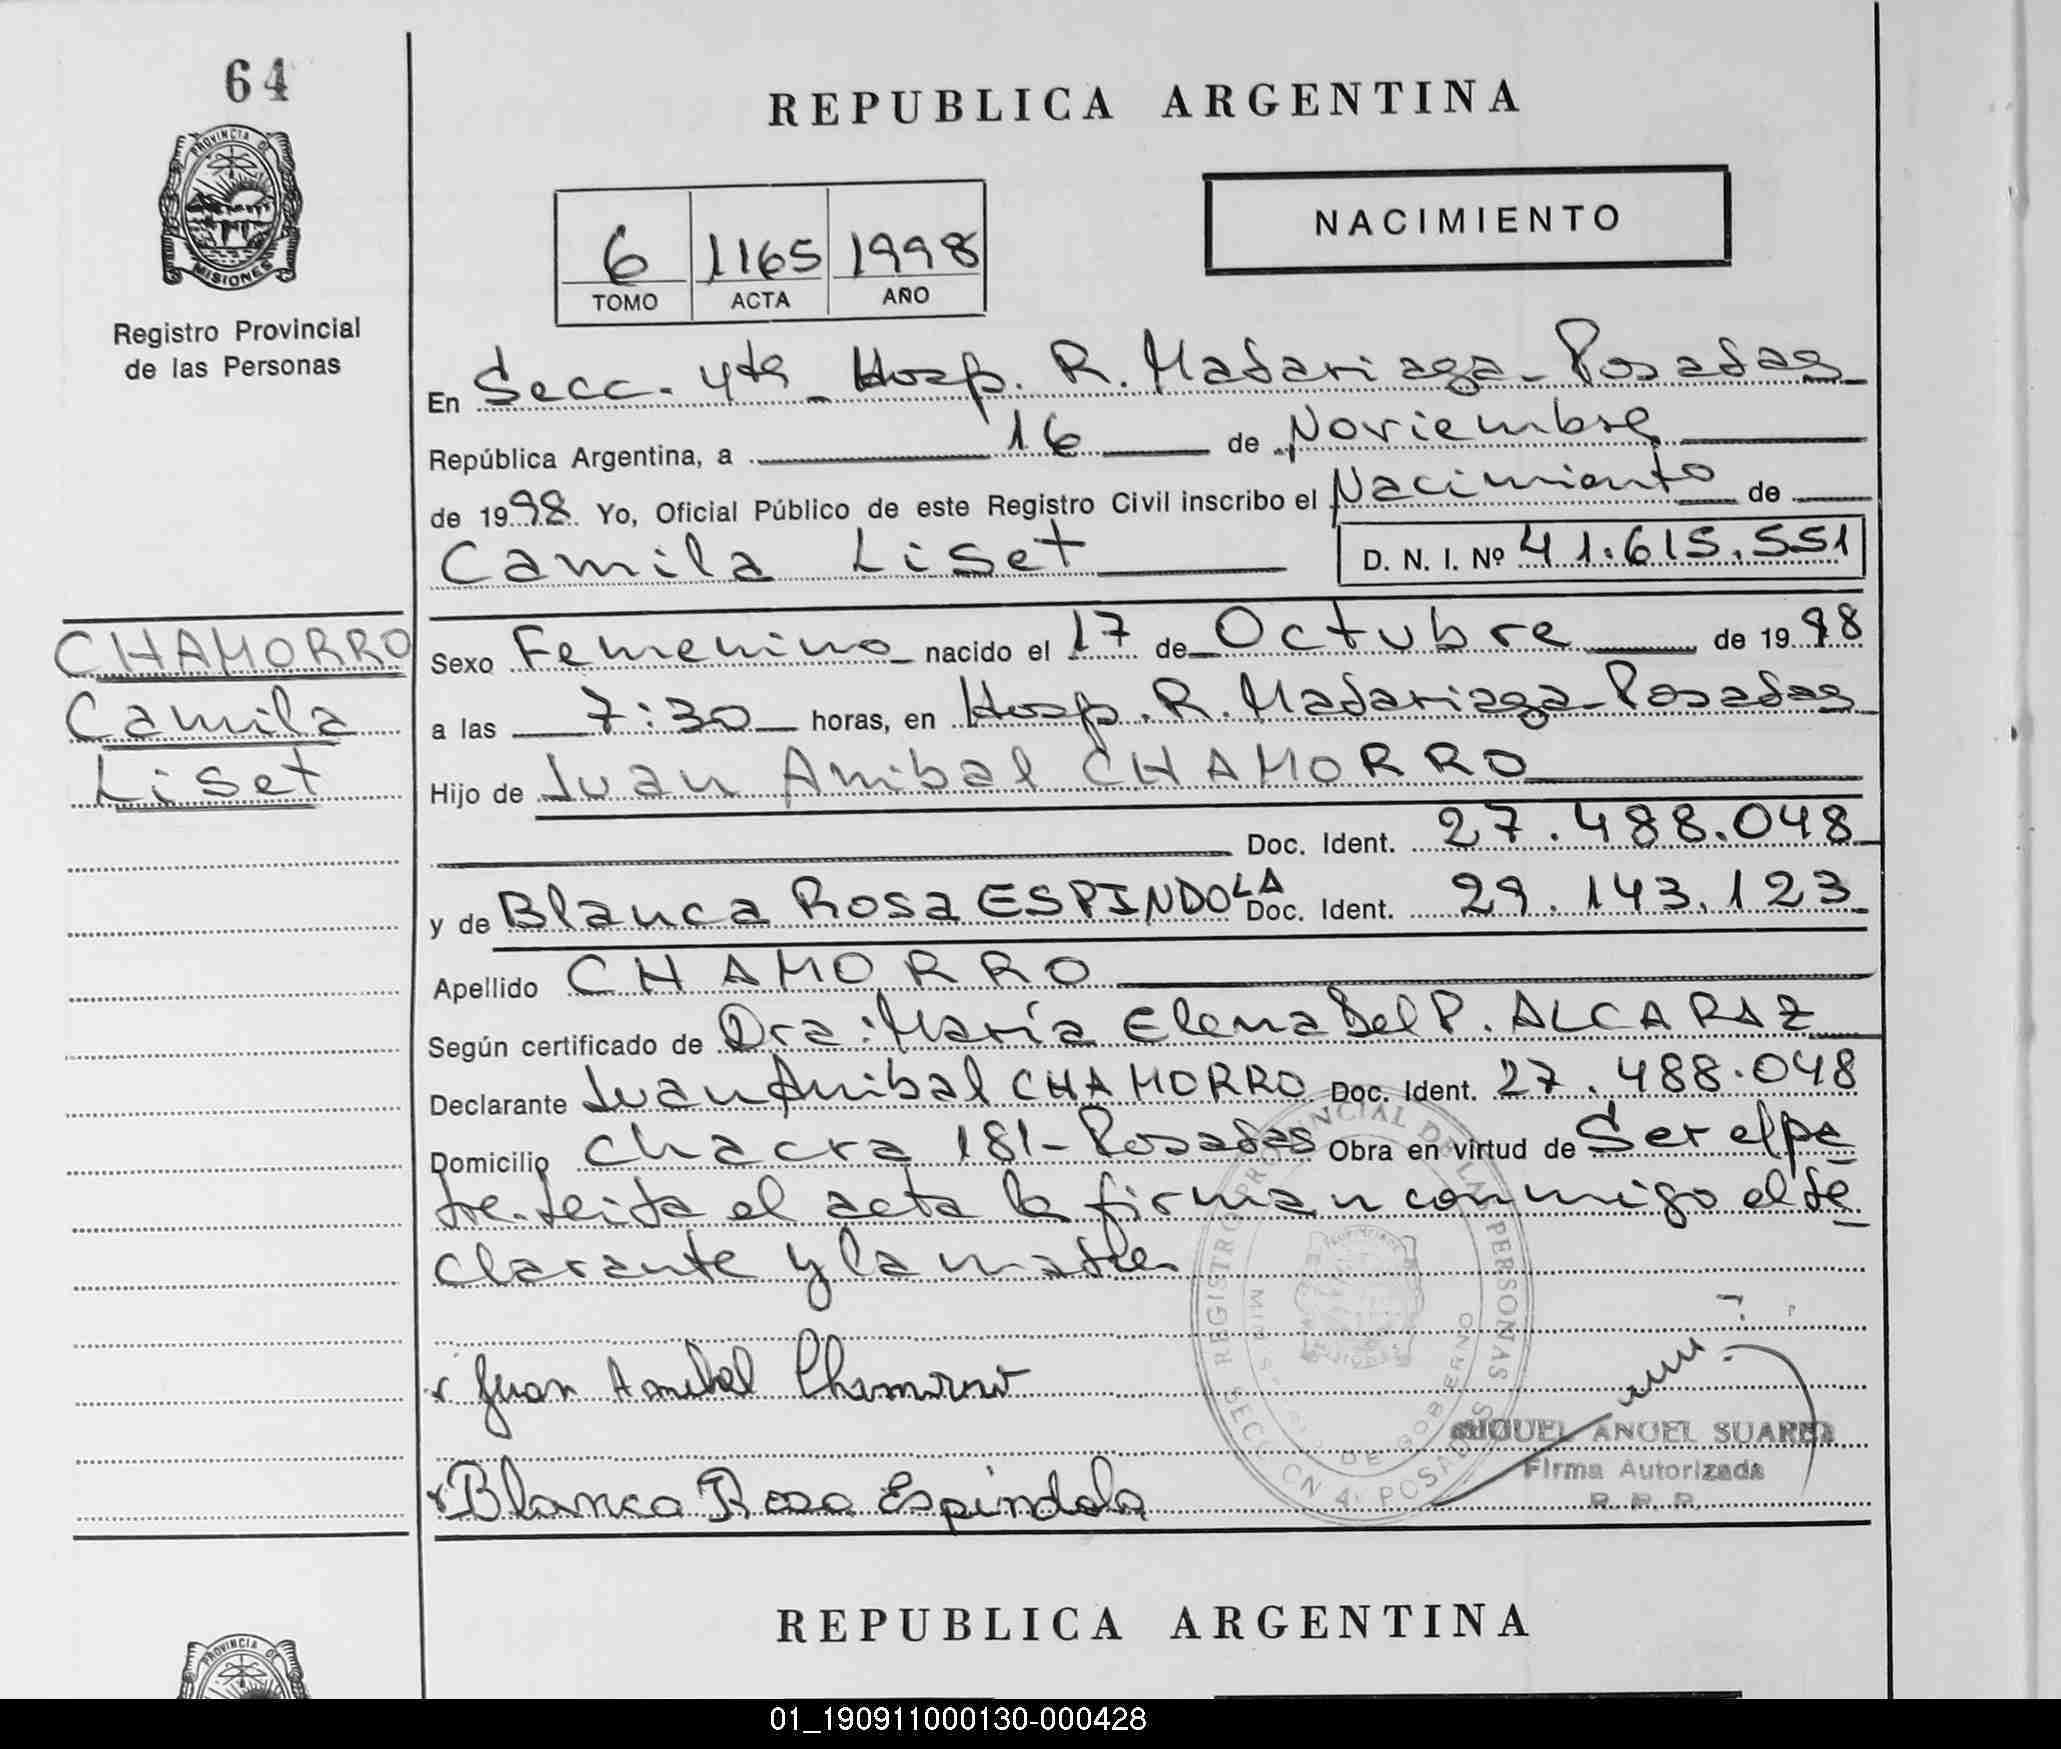 64
PROVINCIA DE
MISIONES
Registro Provincial
de las Personas
REPUBLICA ARGENTINA
NACIMIENTO
6 1165 1998
TOMO ACTA AÑO
En Secc. 4ta Hosp. R. Madariaga - Posadas
República Argentina, a 16 de Noviembre
de 1998. Yo, Oficial Público de este Registro Civil inscribo el Nacimiento de
Camila Liset D. N. I. Nº 41.615.551
CHAMORRO
Camila
Liset
Sexo Femenino nacido el 17 de Octubre de 1998
a las 7:30 horas, en Hosp. R. Madariaga - Posadas
Hijo de Juan Anibal CHAMORRO
Doc. Ident. 27.488.048
y de Blanca Rosa ESPINDOLA Doc. Ident. 29.143.123
Apellido CHAMORRO
Según certificado de Dra: María Elena del P. ALCARAZ
Declarante Juan Anibal CHAMORRO Doc. Ident. 27.488.048
Domicilio chacra 181 - Posadas Obra en virtud de Ser el pa
dre. Leida el acta la firman conmigo el de
clarante y la madre.
REGISTRO PROVINCIAL DE LAS PERSONAS
DE GOBIERNO
SECCION 4ª POSADAS
Juan Anibal Chamorro
MIGUEL ANGEL SUAREZ
Firma Autorizada
R. P. P.
Blanca Rosa Espindola
REPUBLICA ARGENTINA
PROVINCIA DE
01_190911000130-000428